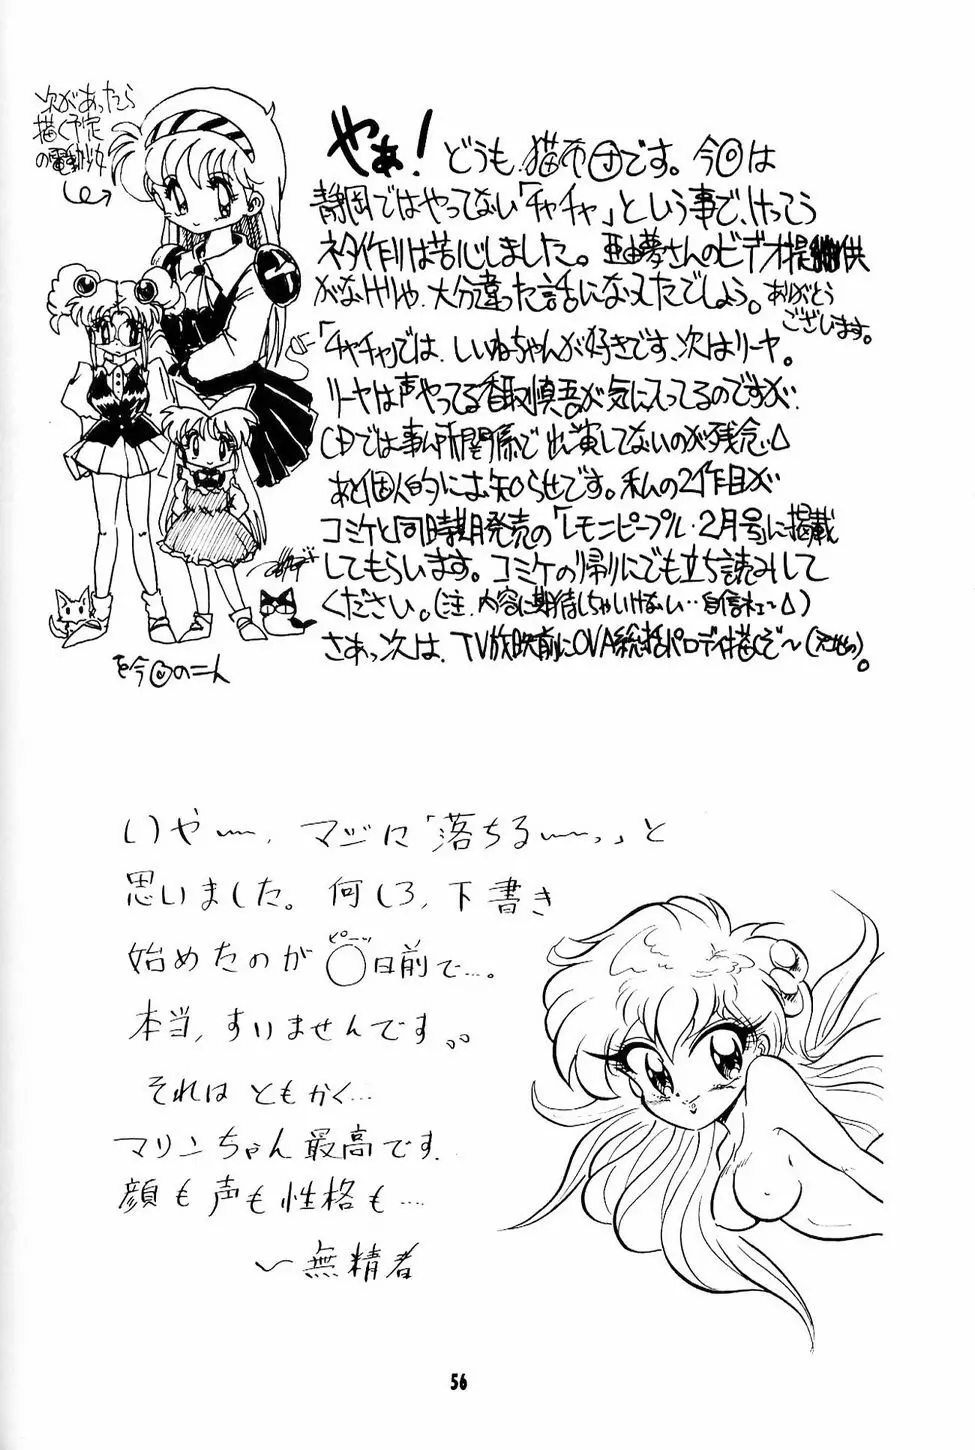 次があったら
描く予定
の電動少女
やぁ！どうも、猫布団です。今回は
静岡ではやってない「チャチャ」という事で、けっこう
ネタ作りは苦心しました。亜由夢さんのビデオ提供
がなけりゃ、大分違った話になってたでしょう。ありがとう
ございます。
「チャチャ」では、しいねちゃんが好きです、次はリーヤ。
リーヤは声やってる香取慎吾が気に入ってるのですが、
CDでは事ム所関係で出演してないのが残念。
あと個人的にお知らせです。私の2作目が
コミケと同時期発売の「レモンピープル・2月号」に掲載
してもらいます。コミケの帰りにでも立ち読みして
ください。(注、内容に期待しちゃいけない…自信ネェー)
さぁっ次は、TV放映前にOVA総括パロディ描くぞ〜
を今回のニん
いやー、マジに「落ちるーっ」と
思いました。何しろ、下書き
始めたのがピーッ
〇日前で…。
本当、すいませんです。。
それはともかく…
マリンちゃん最高です。
顔も声も性格も…
〜無精者
56